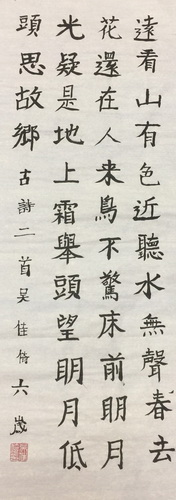 遠看山有色近聽水無聲春去
花還在人来鳥不驚床前明月
光疑是地上霜舉頭望明月低
頭思故鄉古詩二首吴佳倚六歲